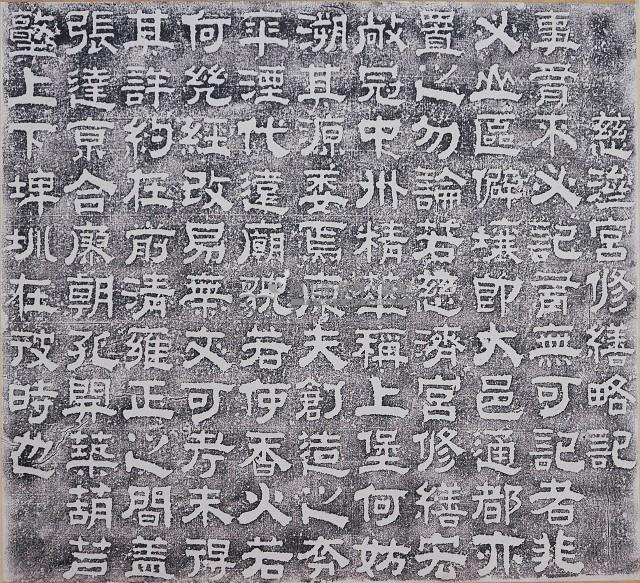 慈濟宮修繕略記
事有不必記有無可記者非
必山區僻壤即大邑通都亦
置之勿論若慈濟宮修繕宏
敞冠中州精華稱上堡何妨
溯其源委焉原夫創造之
年湮代遠廟貌若伊香火若
何幾經改易無文可考未得
其詳約在前清雍正之間蓋
張達京合廖朝孔葫芦
墪上下埤圳在彼時也